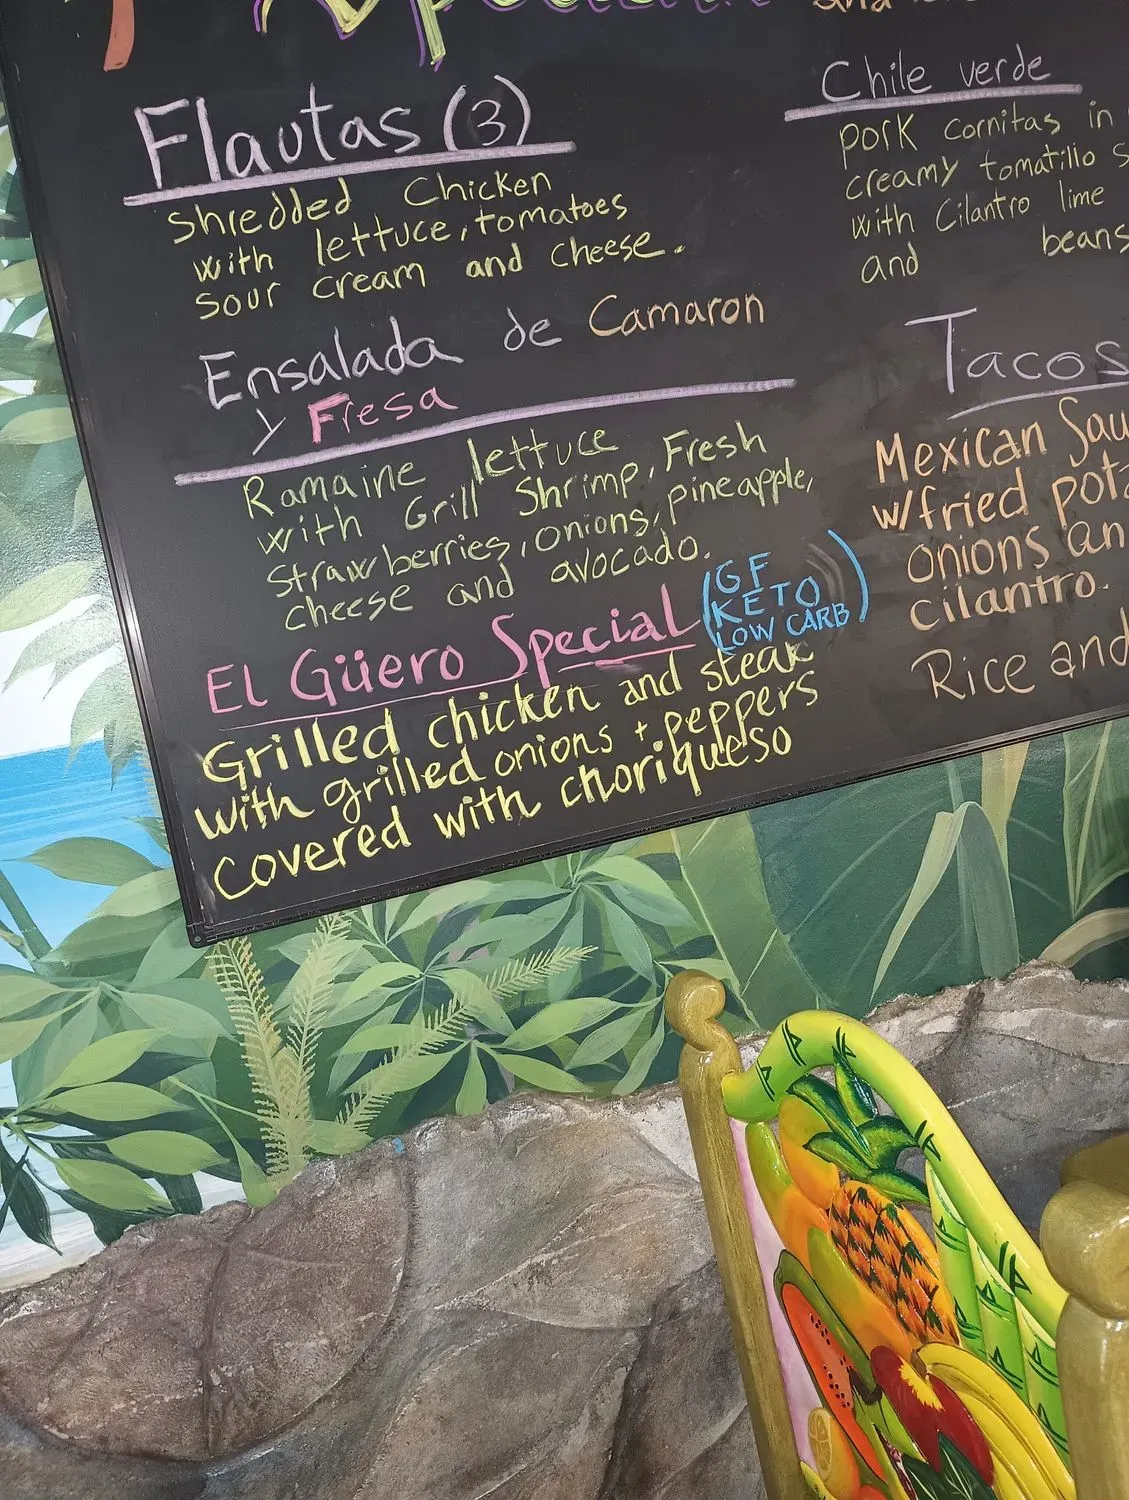 Special
and
Flautas (3)
Shredded Chicken
with lettuce, tomatoes
sour cream and cheese.
Ensalada de Camaron
y Fresa
Ramaine lettuce
with Grill Shrimp, Fresh
strawberries, onions, pineapple,
cheese and avocado.
El Güero Special (GF
KETO
LOW CARB)
Grilled chicken and steak
with grilled onions + peppers
Covered with choriqueso
Chile verde
pork Cornitas in
creamy tomatillo
with Cilantro lime
and beans
Tacos
Mexican
w/fried
onions
cilantro.
Rice and